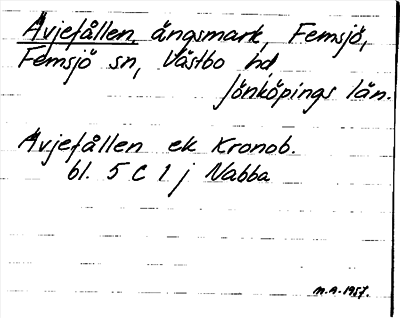 Avjefållen, ängsmark, Femsjö,
Femsjö sn, Västbo hd,
Jönköpings län.
Avjefållen ek Kronob.
bl. 5 C 1 j Nabba
M.A. 1957.